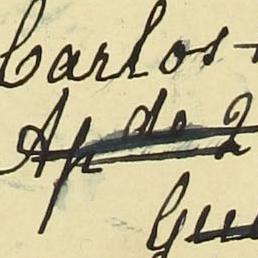 Carlos-
Ap de 2
Gu